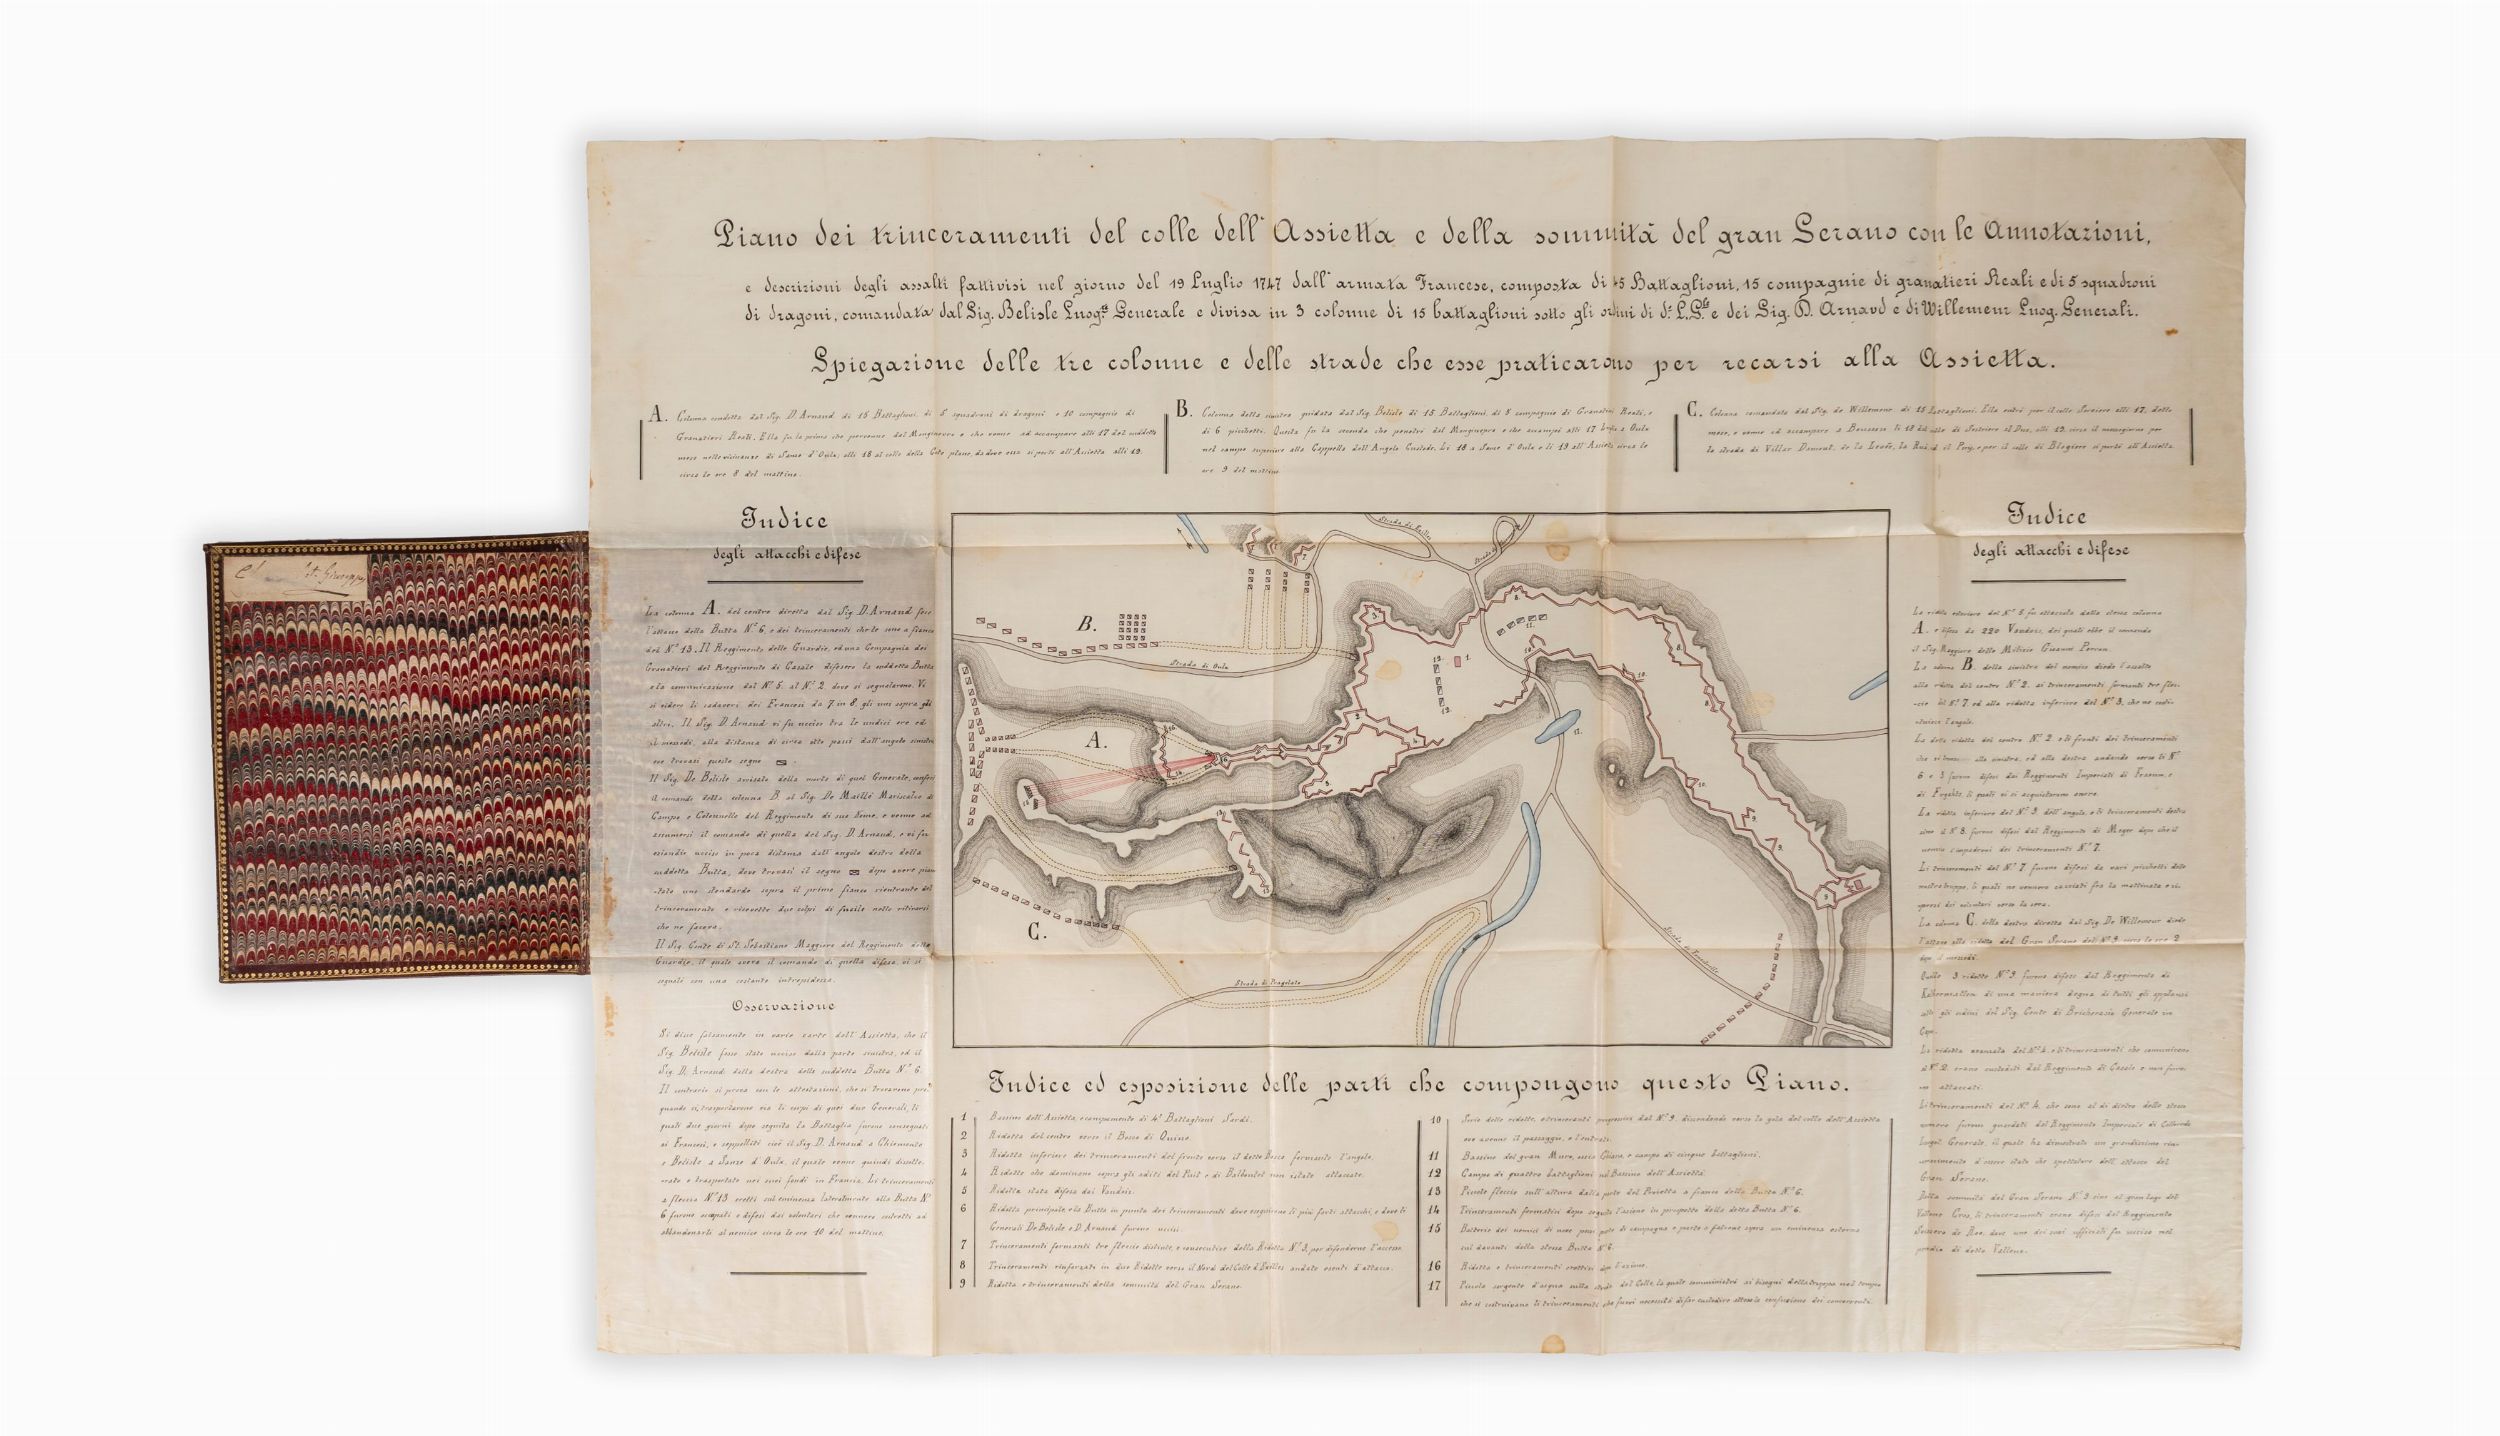 Piano dei trinceramenti del colle dell' Assietta e della sommità del gran Serano con le Annotazioni,
e descrizioni degli assalti fattivisi nel giorno del 19 Luglio 1747 dall' armata Francese, composta di 45 Battaglioni, 15 compagnie di granatieri Reali e di 5 squadroni
di dragoni, comandata dal Sig. Belisle Luog.te Generale e divisa in 3 colonne di 15 battaglioni sotto gli ordini di e dei Sig. D. Arnavd e di Willemeur Luog. Generali.
Spiegazione delle tre colonne e delle strade che esse praticarono per recarsi alla Assietta.
A. Colonna condotta dal Sig. D. Arnaud di 15 Battaglioni, di 5 squadroni di dragoni e 10 compagnie di
Granatieri Reali. Ella fu la prima che pervenne dal Monginevro e che venne ad accampare alli 17 del suddetto
mese nelle vicinanze di Sauze d'Oulx, alli 18 al colle della Cote plane, da dove essa si portò all'Assietta alli 19.
circa le ore 8 del mattino.
B. Colonna della sinistra guidata dal Sig. Belisle di 15 Battaglioni, di 8 compagnie di Granatieri Reali, e
di 6 picchetti. Questa fu la seconda che penetrò dal Monginevro e che accampò alli 17 a Oulx
nel campo superiore alla Cappella dell'Angelo Custode. Li 18 a Sauze d'Oulx e li 19 all'Assietta circa le
ore 9 del mattino.
C. Colonna comandata dal Sig. de Willemeur di 15 Battaglioni. Ella entrò per il colle alli 17, detto
mese, e venne ad accampare a li 18 dal colle di Sestriere al Duc, alli 19. circa il mezzogiorno per
la strada di Villar Damont, de la il Pery, e per il colle di Blegiere si portò all'Assietta.
Indice
degli attacchi e difese
La colonna A. del centro diretta dal Sig. D. Arnaud fece
l'attacco della Butta N.º 6, e dei trinceramenti che le sono a fianco
del N.º 13. Il Reggimento delle Guardie, ed una Compagnia dei
Granatieri del Reggimento di Casale difesero la suddetta Butta
e la comunicazione dal N.º 5. al N.º 2. dove si segnalarono. Vi
si videro li cadaveri dei Francesi da 7 in 8, gli uni sopra gli
altri. Il Sig. D. Arnaud vi fu ucciso tra le undici ore ed
il mezzodì, alla distanza di circa otto passi dall'angolo sinistro
ove trovasi questo segno
Il Sig. De Belisle avvisato della morte di quel Generale, conferì
il comando della colonna B. al Sig. De Maillé Maresciallo di
Campo e Colonnello del Reggimento di suo Nome, e venne ad
assumersi il comando di quella del Sig. D. Arnaud, e vi fu
eziandio ucciso in poca distanza dall'angolo destro della
suddetta Butta, dove trovasi il segno dopo avere pian-
-tato uno stendardo sopra il primo fianco rientrante del
trinceramento e ricevette due colpi di fucile nello ritirarsi
che ne faceva.
Il Sig. Conte di St. Sebastiano Maggiore del Reggimento delle
Guardie, il quale aveva il comando di quella difesa, vi si
segnalò con una costante intrepidezza.
Osservazione
Si dice falsamente in varie carte dell'Assietta, che il
Sig. Belisle fosse stato ucciso dalla parte sinistra, ed il
Sig. D. Arnaud della destra della suddetta Butta N.º 6.
Il contrario si prova con le attestazioni, che si trovarono
quando si trasportarono via li corpi di quei due Generali, li
quali due giorni dopo seguita la Battaglia furono consegnati
ai Francesi, e seppelliti cioè il Sig. D. Arnaud a Chiomonte
e Belisle a Sauze d'Oulx, il quale venne quindi dissotte-
-rato e trasportato nei suoi fondi in Francia. Li trinceramenti
a freccia N.º 13 eretti sul eminenza lateralmente alla Butta N.º
6 furono occupati e difesi dai volontari che vennero costretti ad
abbandonarli al nemico circa le ore 10 del mattino.
B.
A.
C.
Strada di Oulx
Strada di Exilles
Strada di Pragelato
Strada di Fenestrelle
Indice ed esposizione delle parti che compongono questo Piano.
1 Bassino dell'Assietta, e campamento di 4º Battaglioni Sardi.
2 Ridotta del centro verso il Bosco di
3 Ridotta inferiore dei trinceramenti del fronte verso il detto Bosco formante l'angolo.
4 Ridotta che dominano sopra gli aditi del Puit e di Balboutet non istate attaccate.
5 Ridotta stata difesa dai Vaudois.
6 Ridotta principale, e la Butta in punta dei trinceramenti dove eseguirono li più forti attacchi, e dove li
Generali De Belisle e D. Arnaud furono uccisi.
7 Trinceramenti formanti tre freccie distinte, e consecutive della Ridotta N.º 3, per difenderne l'accesso.
8 Trinceramenti rinforzati in due Ridotte verso il Nord del Colle d'Exilles andate esenti d'attacco.
9 Ridotta e trinceramenti della sommità del Gran Serano.
10 Serie delle ridotte, e trinceranti progressivi dal N.º 9. discendendo verso la gola del colle dell'Assietta
ove avanno il passaggio, e l'entrata.
11 Bassino del gran Muro, ossia Chiana, e campo di cinque battaglioni.
12 Campo di quattro battaglioni nel Bassino dell'Assietta.
13 Piccole freccie sull'altura dalla parte del Provietta a fianco della Butta N.º 6.
14 Trinceramenti formatisi dopo seguita l'azione in prospetto della detta Butta N.º 6.
15 Batteria dei nemici di nove pezzi parte di campagna e parte a falcone sopra un eminenza esterna
sul davanti della stessa Butta N.º 6.
16 Ridotta e trinceramenti erettisi dopo l'azione.
17 Piccola sorgente d'acqua sulla strada del Colle, la quale somministrò ai bisogni della truppa nel tempo
che si costruivano li trinceramenti che fuvvi necessità di far custodire attesa la confusione dei concorrenti.
Indice
degli attacchi e difese
La ridotta esteriore del N.º 5 fu attaccata dalla stessa colonna
A. e difesa da 220 Vaudois, dei quali ebbe il comando
il Sig. Maggiore delle Milizie Giovanni
La colonna B. della sinistra del nemico diede l'assalto
alla ridotta del centro N.º 2. ai trinceramenti formanti tre frec-
-cie del N.º 7. ed alla ridotta inferiore del N.º 3. che ne costi-
-tuisce l'angolo.
La detta ridotta del centro N.º 2. e li fronti dei trinceramenti
che si trovano alla sinistra, ed alla destra andando verso li N.º
6 e 3 furono difesi dai Reggimenti Imperiali di e
di li quali vi si acquistarono onore.
La ridotta inferiore del N.º 3. dell'angolo, e li trinceramenti destra
sino il N.º 8. furono difesi dal Reggimento di Meyer dopo che il
nemico s'impadronì dei trinceramenti N.º 7.
Li trinceramenti del N.º 7 furono difesi da vari picchetti delle
nostre truppe, li quali ne vennero cacciati fra la mattinata e ri-
-presi dai volontari verso la sera.
La colonna C. della destra diretta dal Sig. De Willemeur diede
l'attacco alla ridotta del Gran Serano del N.º 9. verso le ore 2
dopo il mezzodì.
Quelle 3 ridotte N.º 9. furono difese dal Reggimento di
Kalbermatten di una maniera degna di tutti gli applausi
sotto gli ordini del Sig. Conte di Bricherasio Generale in
Capo.
La ridotta avanzata del N.º 4. e li trinceramenti che comunicano
al N.º 2. erano custoditi dal Reggimento di Casale e non furo-
no attaccati.
Li trinceramenti del N.º 4. che sono al di dietro dello stesso
numero furono guardati dal Reggimento Imperiale di Colloredo
Luogot. Generale, il quale ha dimostrato un grandissimo rin-
crescimento d'essere stato che spettatore dell'attacco del
Gran Serano.
Dalla sommità del Gran Serano N.º 9 sino al gran lago del
Vallone Cros, li trinceramenti erano difesi del Reggimento
Svizzero de Roy, dove uno dei suoi uffiziali fu ucciso nel
pendio di detto Vallone.